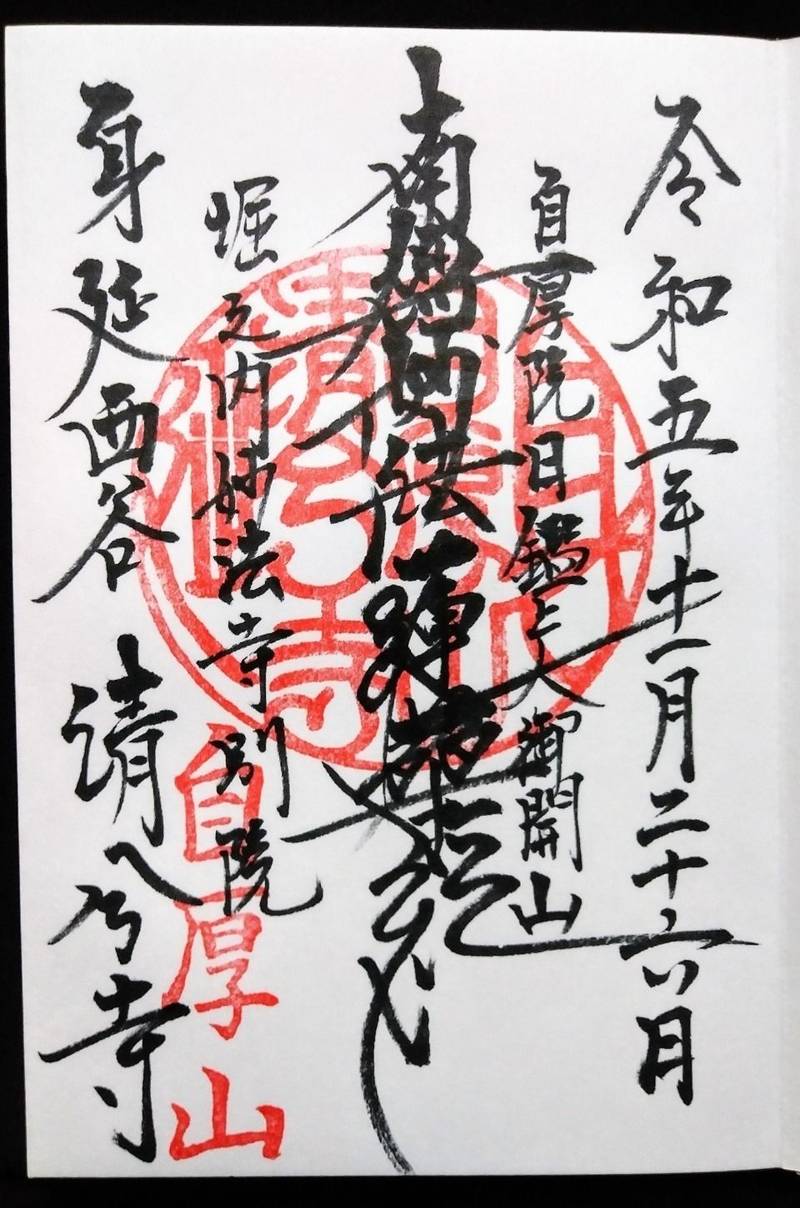 令和五年十一月二十六日
自厚院日鑑上人御開山
南無妙法蓮華経
堀之内妙法寺別院
身延西谷 清兮寺
自厚山